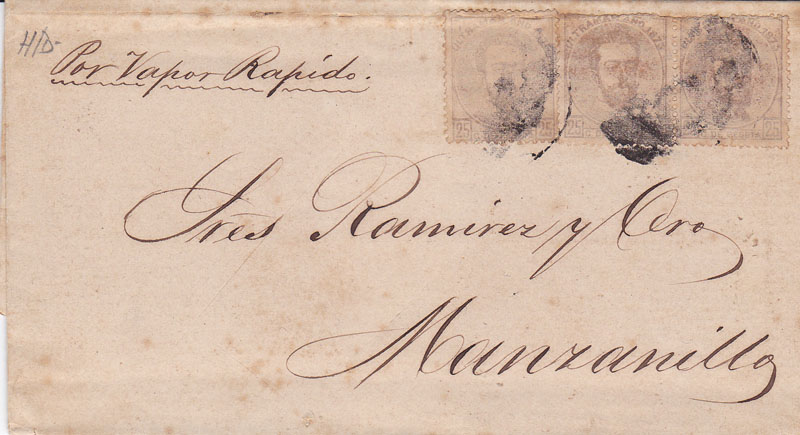 H/D-
Por Vapor Rapido.
ULTRAMAR AÑO 1873
25 25
25
25
Sres Ramirez y Oro
Manzanillo